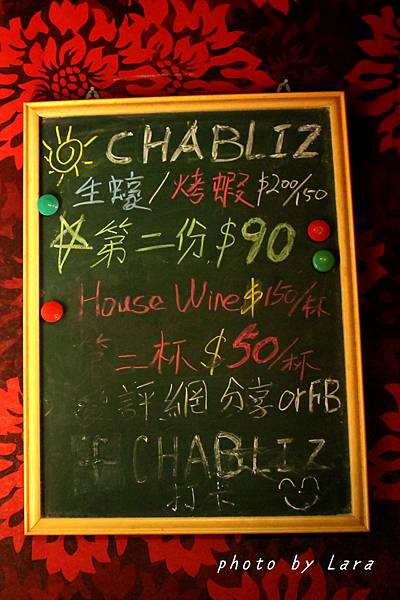 CHABLIZ
生蠔/烤蝦 $200/150
第二份 $90
House Wine $150/杯
第二杯 $50/杯
評網 分享 orFB
CHABLIZ
打卡
photo by Lara